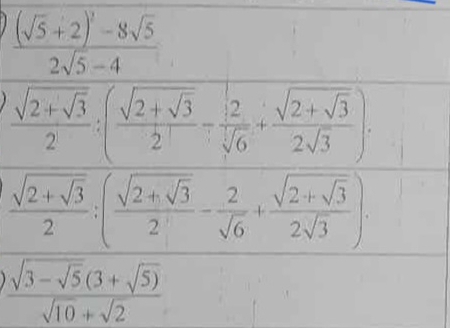 ) \frac{(\sqrt{5}+2)^2 - 8\sqrt{5}}{2\sqrt{5}-4}
) \frac{\sqrt{2+\sqrt{3}}}{2} : \left( \frac{\sqrt{2+\sqrt{3}}}{2} - \frac{2}{\sqrt{6}} + \frac{\sqrt{2+\sqrt{3}}}{2\sqrt{3}} \right).
) \frac{\sqrt{2+\sqrt{3}}}{2} : \left( \frac{\sqrt{2+\sqrt{3}}}{2} - \frac{2}{\sqrt{6}} + \frac{\sqrt{2+\sqrt{3}}}{2\sqrt{3}} \right).
) \frac{\sqrt{3-\sqrt{5}}(3+\sqrt{5})}{\sqrt{10}+\sqrt{2}}